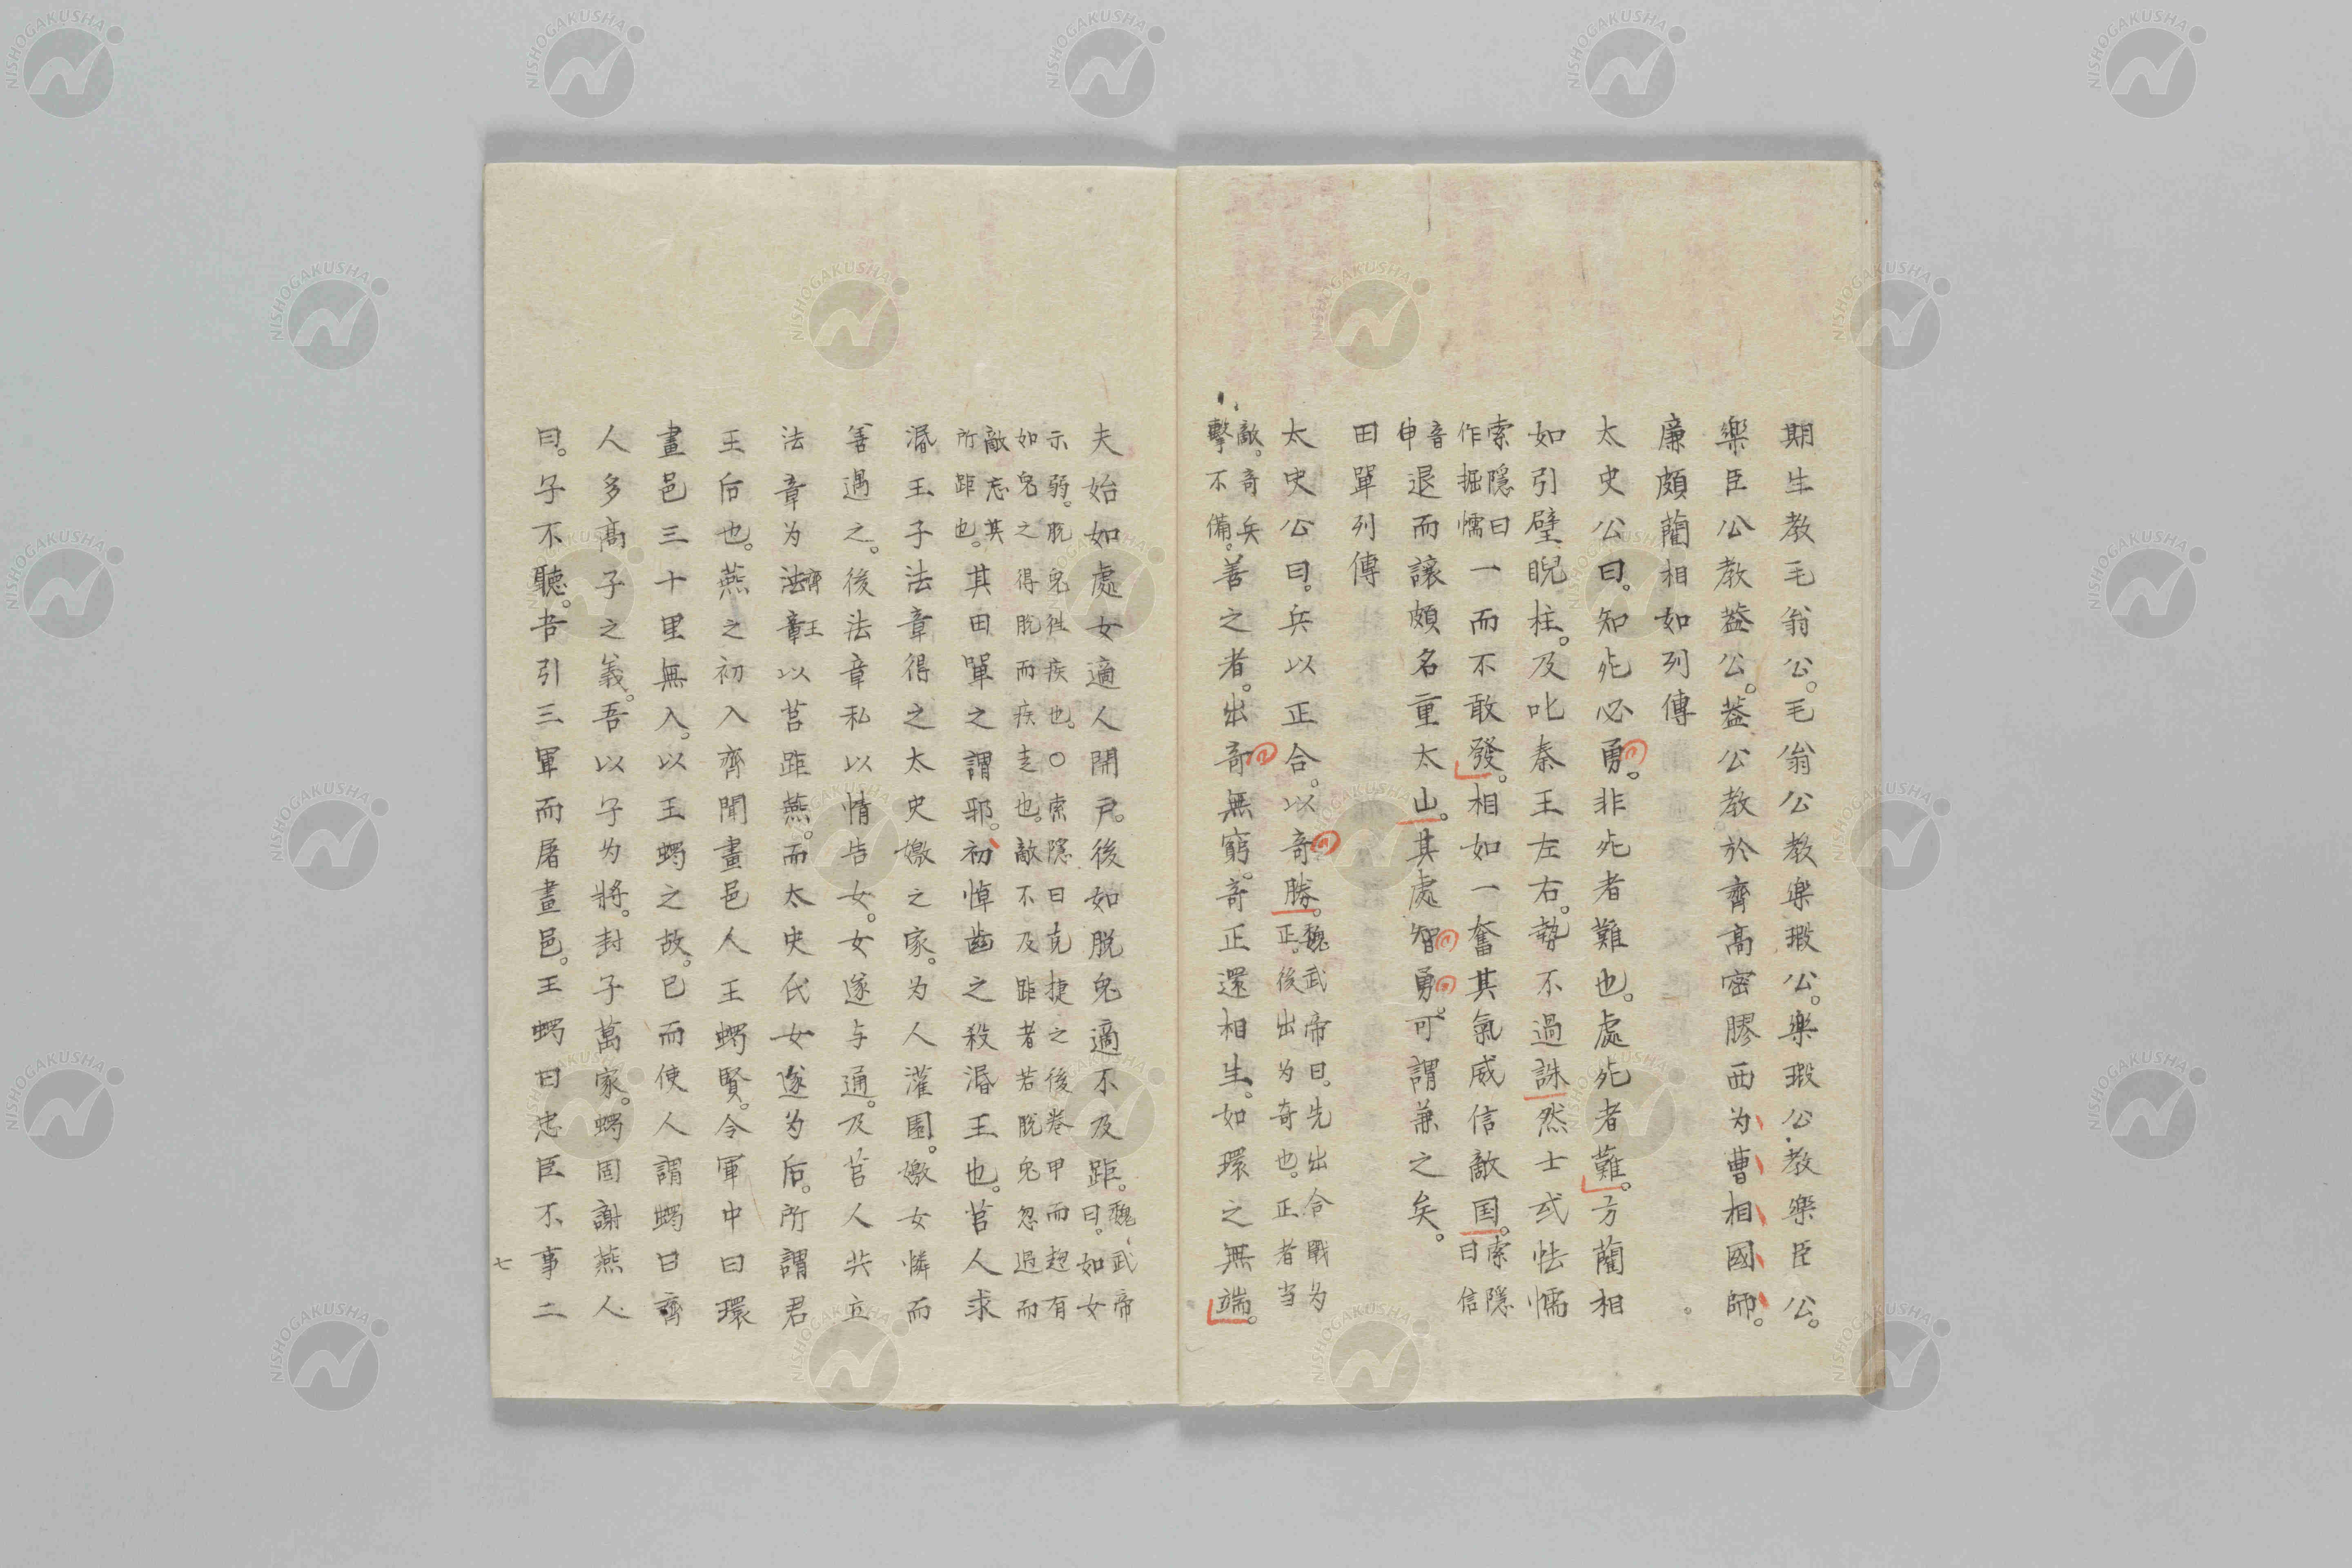 期生教毛翁公。毛翁公教楽瑕公。楽瑕公教楽臣公。
楽臣公教蓋公。蓋公教於齊高密膠西为曹相國師。
廉頗藺相如列傳
太史公曰。知死必勇。非死者難也。處死者難。方藺相
如引璧睨柱。及叱秦王左右。勢不過誅然士或怯懦
索隠曰
作掘懦
一而不敢發。相如一奮其氣威信敵国。
索隠
曰信
音
申
退而讓頗名重太山。其處智勇。可謂兼之矣。
田單列傳
太史公曰。兵以正合。以奇勝。
魏武帝曰。先出合戰为
正。後出为奇也。正者当
敵。奇兵
擊不備。
善之者。出奇無窮。奇正還相生。如環之無端。
夫始如處女適人開戸。後如脱兔適不及距。
魏武帝
曰。如女
示弱。脱兔徃疾也。〇索隠曰克捷之後卷甲而趍有
如兔之得脱而疾走也。敵不及距者若脱兔忽過而
敵忘其
所距也。
其田單之謂耶。初悼齒之殺湣王也。莒人求
湣王子法章得之太史嬓之家。为人灌園。嬓女憐而
善遇之。後法章私以情告女。女遂与通。及莒人共立
法章为
齊王
法章以莒距燕。而太史氏女遂为后。所謂君
王后也。燕之初入齊聞畫邑人王蠋賢。令軍中曰環
畫邑三十里無入。以王蠋之故。已而使人謂蠋曰齊
人多高子之義。吾以子为將。封子萬家。蠋固謝燕人
曰。子不聽。吾引三軍而屠畫邑。王蠋曰忠臣不事二
七
NISHOGAKUSHA